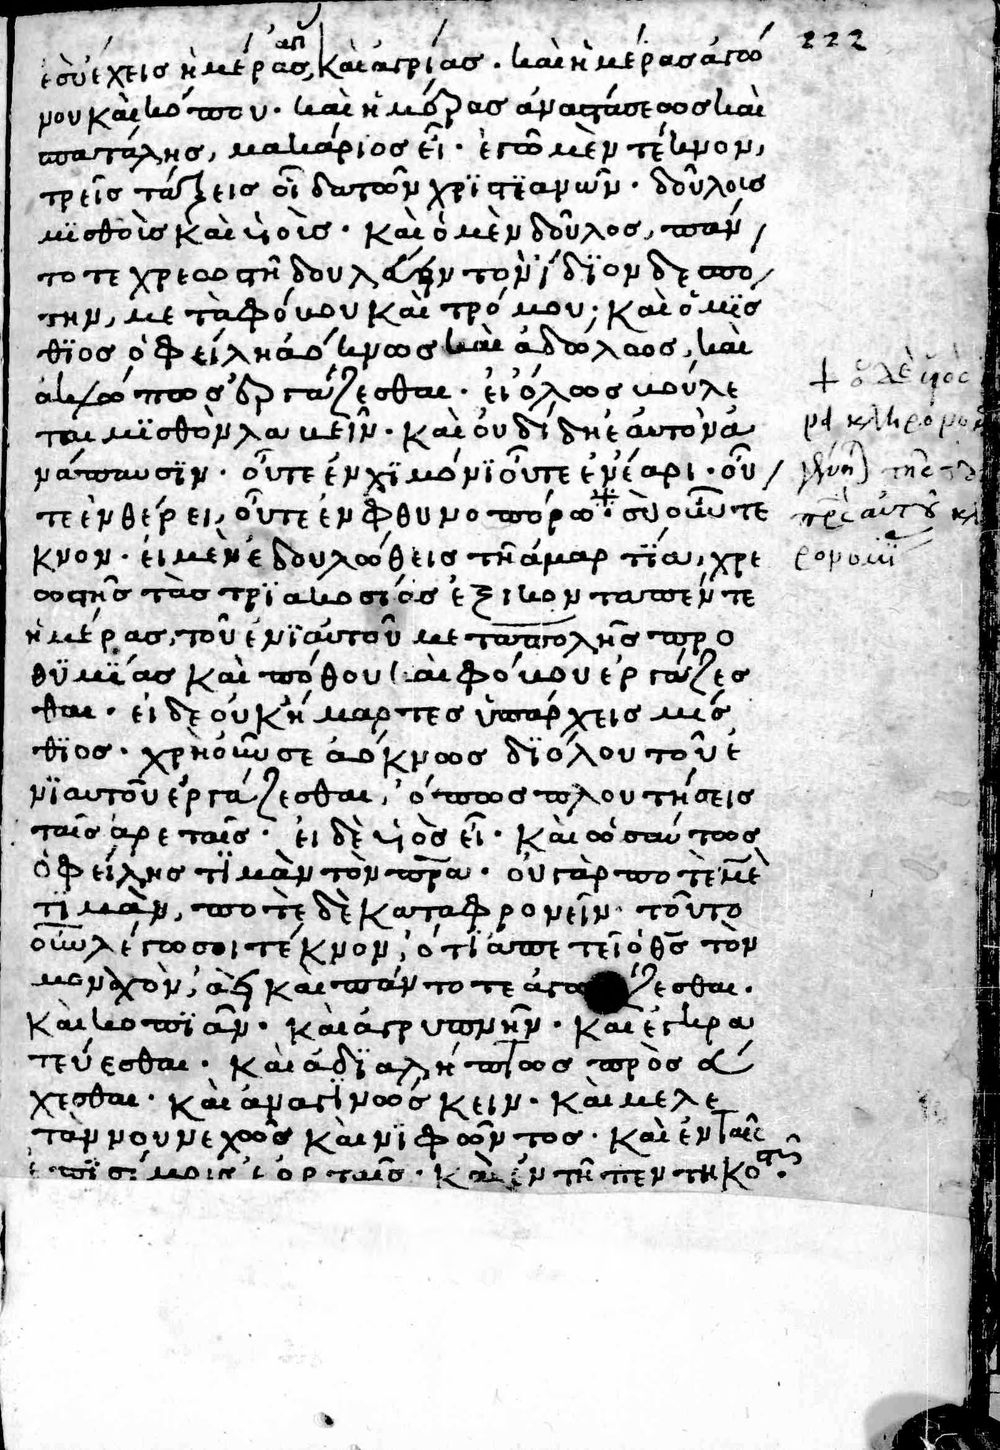 222
ἐσὺ ἔχεις ἡμέρας ἀπ, καὶ ἀγρίας. καὶ ἡμέρας ἀγώ
μου καὶ κόπου. καὶ ἡμέρας ἀναπάσεως καὶ
σπατάλης, μακάριος εἶ. ἐγῶ μὲν τέκνον,
τρεῖς τάξεις οἶδα τῶν χρϊστϊανῶν. δοῦλοις
μϊσθοὶς καὶ ὑιοὶς. καὶ ὁ μὲν δοῦλος, πάν
τοτε χρεωστῆ δουλεύην τὸν ἴδϊον δεσπό
την, μετὰ φόνου καὶ τρόμου; καὶ ὁ μϊσ
θϊος ὀφείλη ἀόκνως καὶ ἀδώλως, καὶ
ἀκόπως ἐργάζεσθαι. εἰ ὅλως βούλε
ται μϊσθὸν λαβεῖν. καὶ οὐ δίδη ἑαυτὸν ἀ
νάπαυσϊν. οὔτε ἐν χϊμόνϊ οὔτε ἐν ἔαρι. οὔ
τε ἐν θέρει, οὔτε ἐν φθυνοπόρω. σὺ οὖν τέ
κνον. εἰ μὲν ἐδουλώθεις τῆ ἁμαρτϊα, χρε
ωστῆς τὰς τρϊακοσίας ἐξικονταπέντε
ἡμέρας, τοῦ ἐνϊαυτοῦ μετὰ πολῆς προ
θϋμϊας καὶ πόθου καὶ φόβου ἐργάζεσ
θαι. εἰ δε οὐκ ἥμαρτες ὑπάρχεις μίσ
θϊος. χρὴ οὖν σε ἀόκνως δϊόλου τοῦ ἐ
νϊαυτοῦ ἐργάζεσθαι, ὅπως πλουτήσεις
ταῖς ἀρεταῖς. εἰ δὲ ὑιὸς εἶ. καὶ ὡσαύτως
ὀφείλης τϊμὰν τὸν πρα. οὐ γὰρ ποτὲ μὲ
τϊμὰν, ποτὲ δὲ καταφρονεῖν. τοῦτο
οὖν λέγω σοι τέκνον, ὅτϊ ἀπετεῖ ὁ θς τὸν
μοναχὸν, ἀεὶ καὶ πάντοτε ἀγωνίζεσθαι.
καὶ κοπϊᾶν. καὶ ἀγρυπνῆν. καὶ ἐγκρα
τεύεσθαι. καὶ ἀδϊαλήπτως προσεύ
χεσθαι. καὶ ἀναγϊνώσκειν. καὶ μελε
τὰν νουνεχῶς καὶ νϊφῶντος. καὶ ἐν ταῖς
ἐπϊσίμοις ἑορταῖς. καὶ ἐν τῆ πεντηκοστῆ.
+ ὁ δὲ ὑιὸς
τῆς τοῦ
πρς αὐτοῦ κλ
ρονομϊ